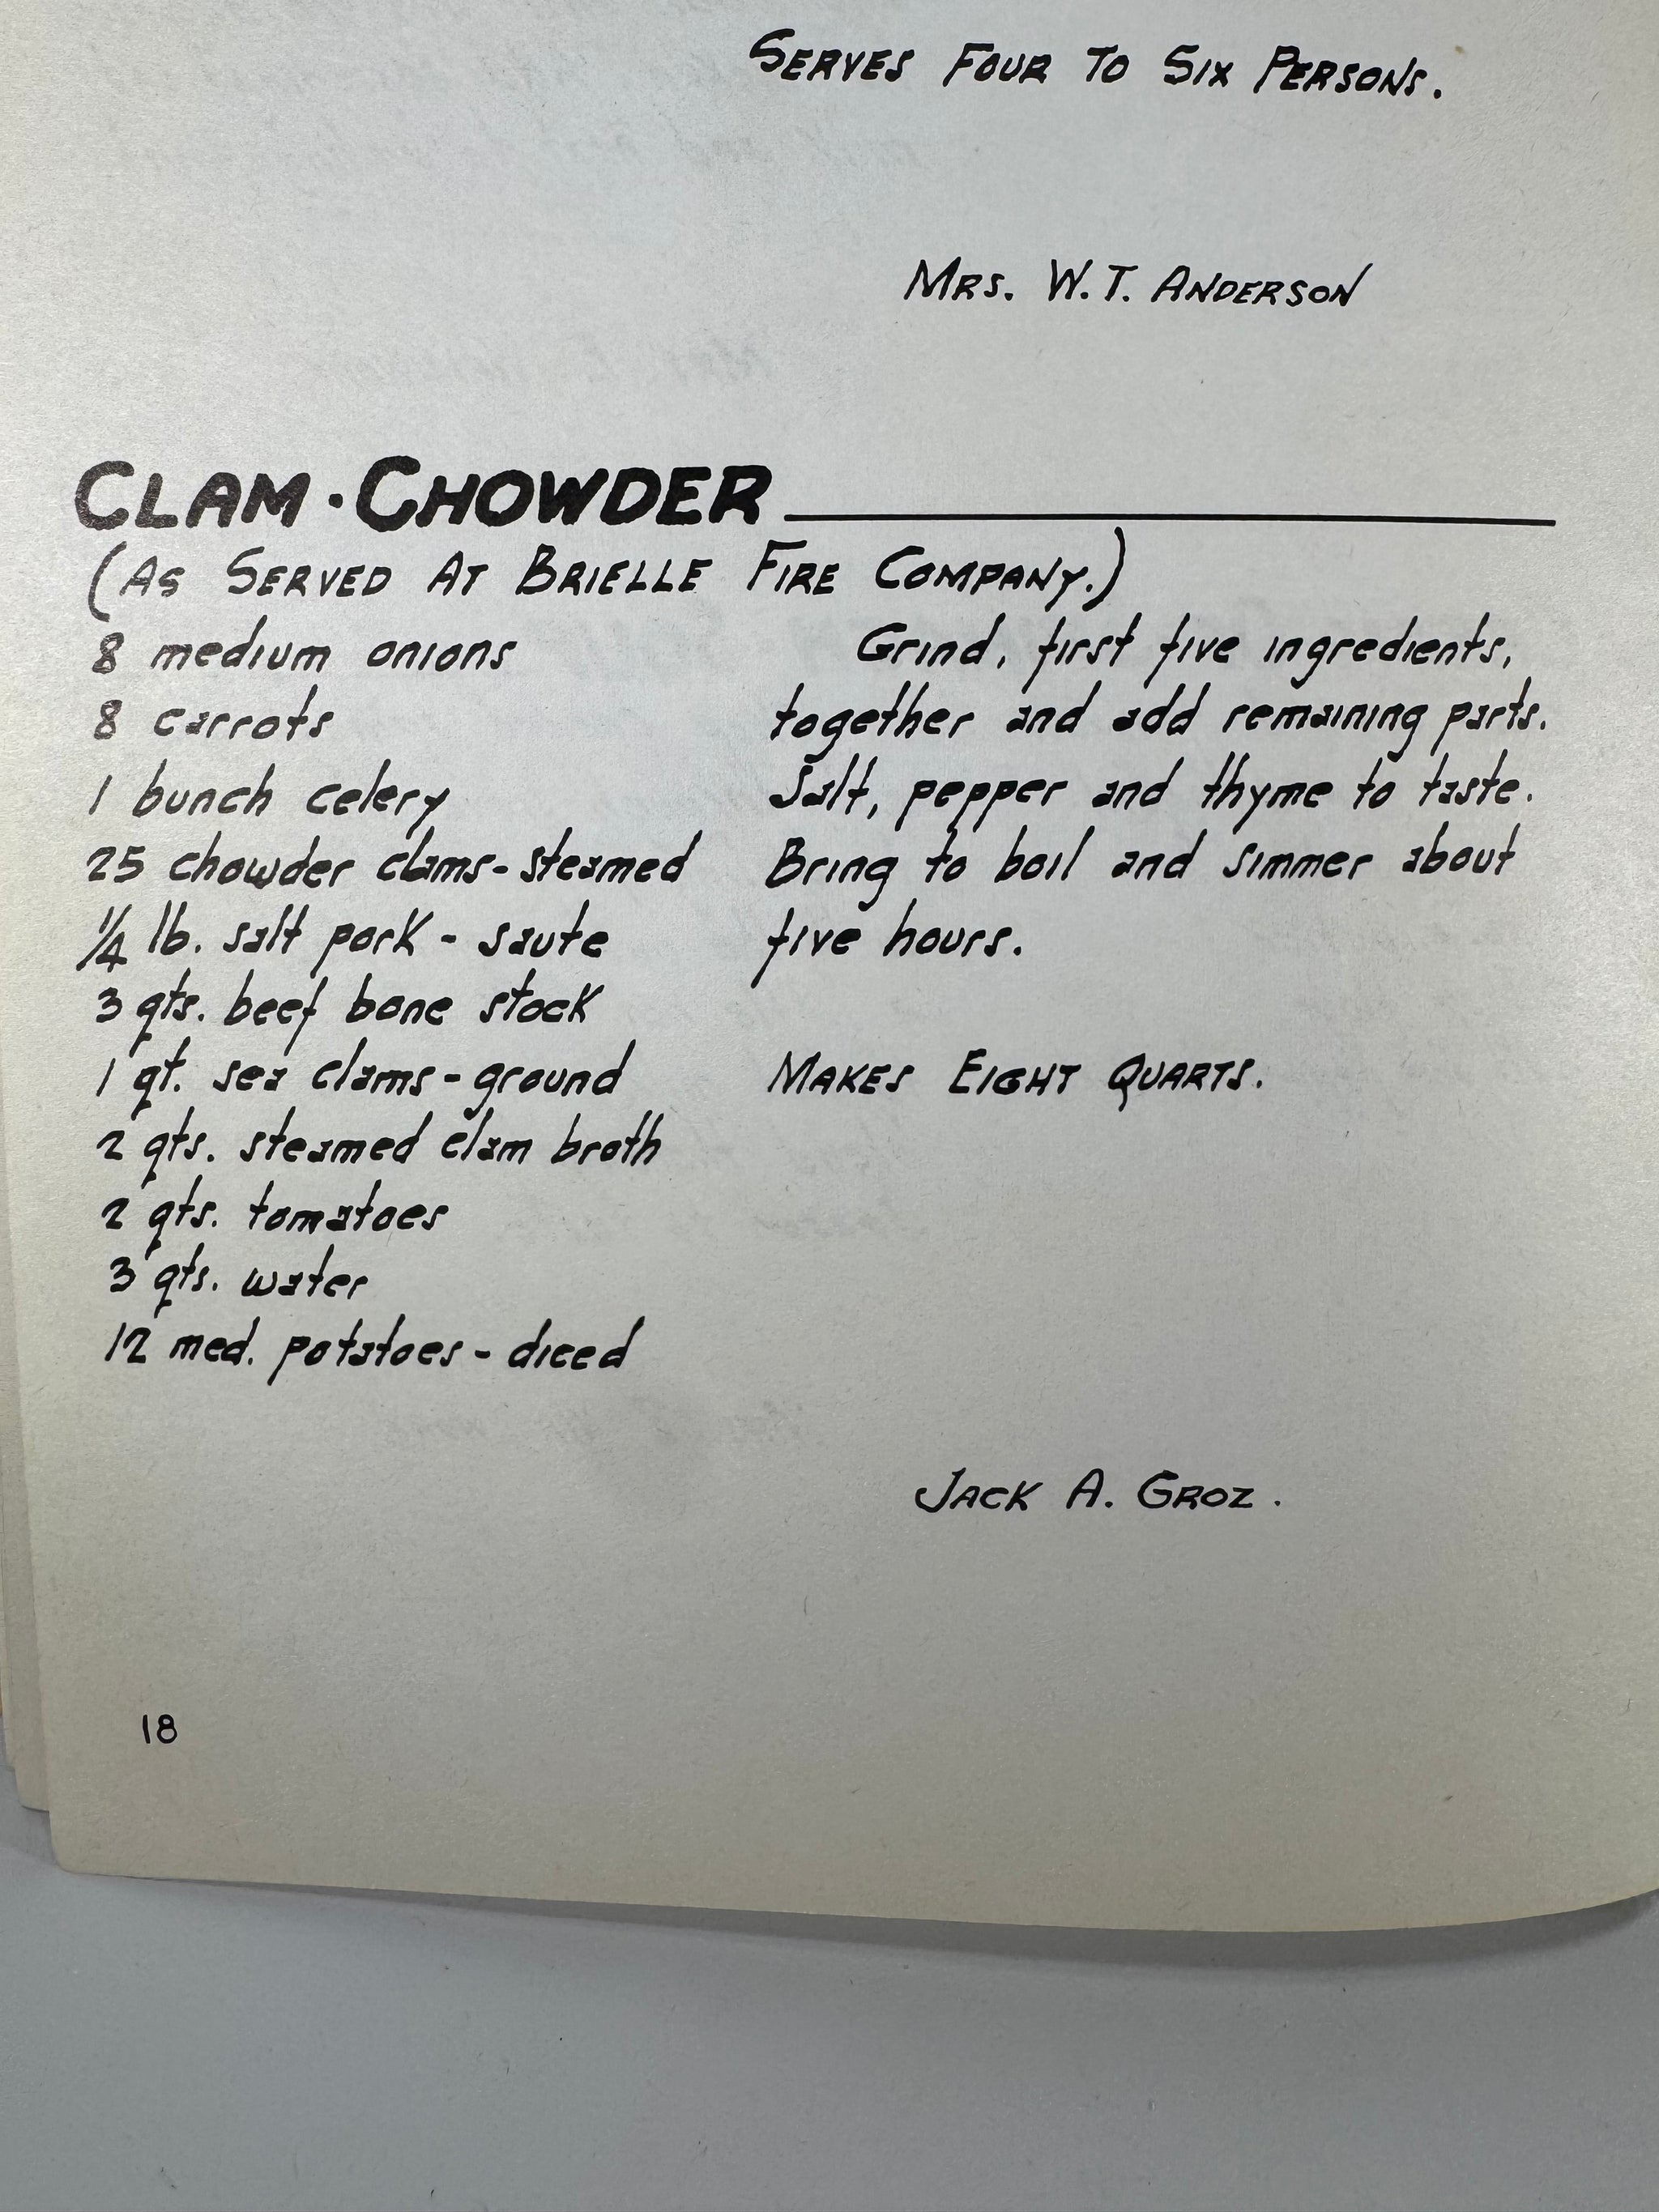 SERVES FOUR TO SIX PERSONS.
MRS. W.T. ANDERSON
CLAM · CHOWDER
(AS SERVED AT BRIELLE FIRE COMPANY.)
8 medium onions
8 carrots
1 bunch celery
25 chowder clams-steamed
1/4 lb. salt pork - saute
3 qts. beef bone stock
1 qt. sea clams-ground
2 qts. steamed clam broth
2 qts. tomatoes
3 qts. water
12 med. potatoes - diced
Grind, first five ingredients,
together and add remaining parts.
Salt, pepper and thyme to taste.
Bring to boil and simmer about
five hours.
MAKES EIGHT QUARTS.
JACK A. GROZ.
18